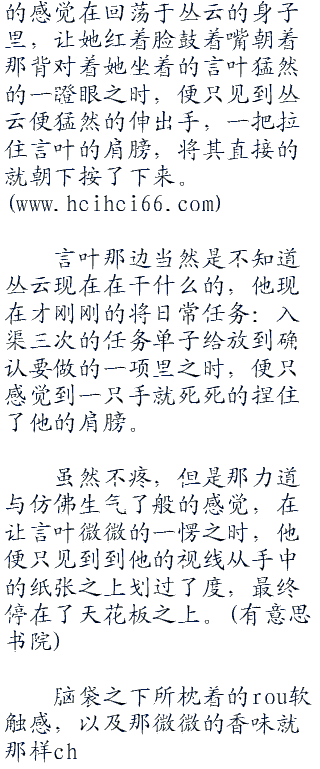 的感觉在回荡于丛云的身子
里，让她红着脸鼓着嘴朝着
那背对着她坐着的言叶猛然
的一瞪眼之时，便只见到丛
云便猛然的伸出手，一把拉
住言叶的肩膀，将其直接的
就朝下按了下来。
(www.hcihci66.com)
言叶那边当然是不知道
丛云现在在干什么的，他现
在才刚刚的将日常任务：入
渠三次的任务单子给放到确
认要做的一项里之时，便只
感觉到一只手就死死的捏住
了他的肩膀。
虽然不疼，但是那力道
与仿佛生气了般的感觉，在
让言叶微微的一愣之时，他
便只见到到他的视线从手中
的纸张之上划过了度，最终
停在了天花板之上。(有意思
书院)
脑袋之下所枕着的rou软
触感，以及那微微的香味就
那样ch